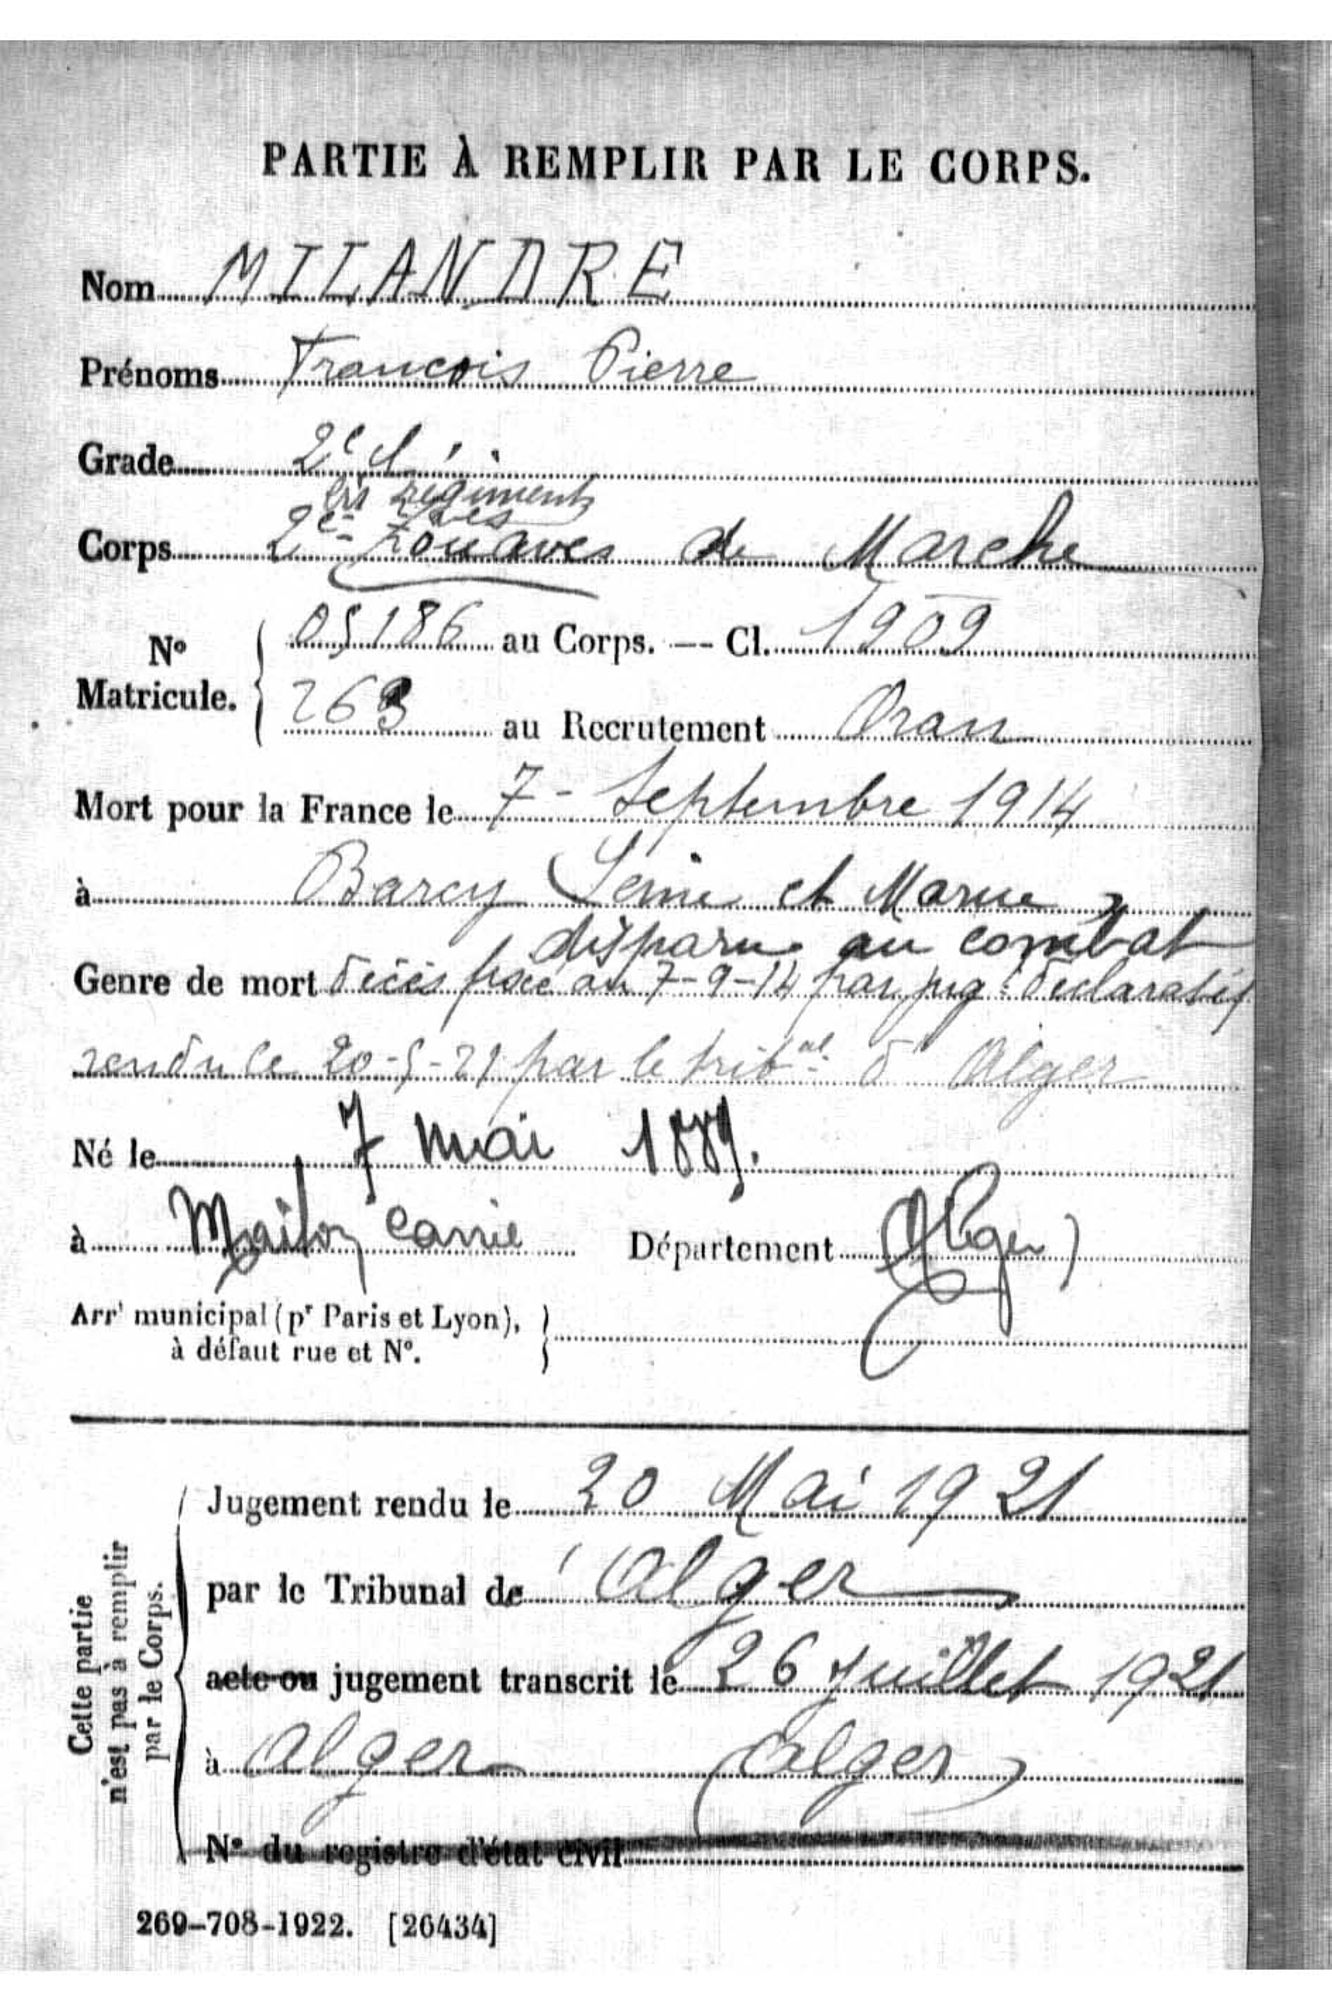 PARTIE À REMPLIR PAR LE CORPS.
Nom MILANDRE
Prénoms Francois Pierre
Grade 2e cl.
régiment
Corps 2e Zouaves de Marche
No Matricule. { 05186 au Corps. — Cl. 1909
263 au Recrutement Oran
Mort pour la France le 7 - Septembre 1914
à Barcy Seine et Marne
disparu au combat
Genre de mort décès fixé au 7-9-14 par jug t déclaratif
rendu le 20-5-21 par le tribal d'Alger
Né le 7 mai 1889.
à Maison Carrée Département Alger)
Arrt municipal (pr Paris et Lyon), }
à défaut rue et No.
Cette partie n'est pas à remplir par le Corps.
Jugement rendu le 20 Mai 1921
par le Tribunal de Alger
acte ou jugement transcrit le 26 Juillet 1921
à Alger (Alger)
No du registre d'état civil
269-708-1922. [26434]